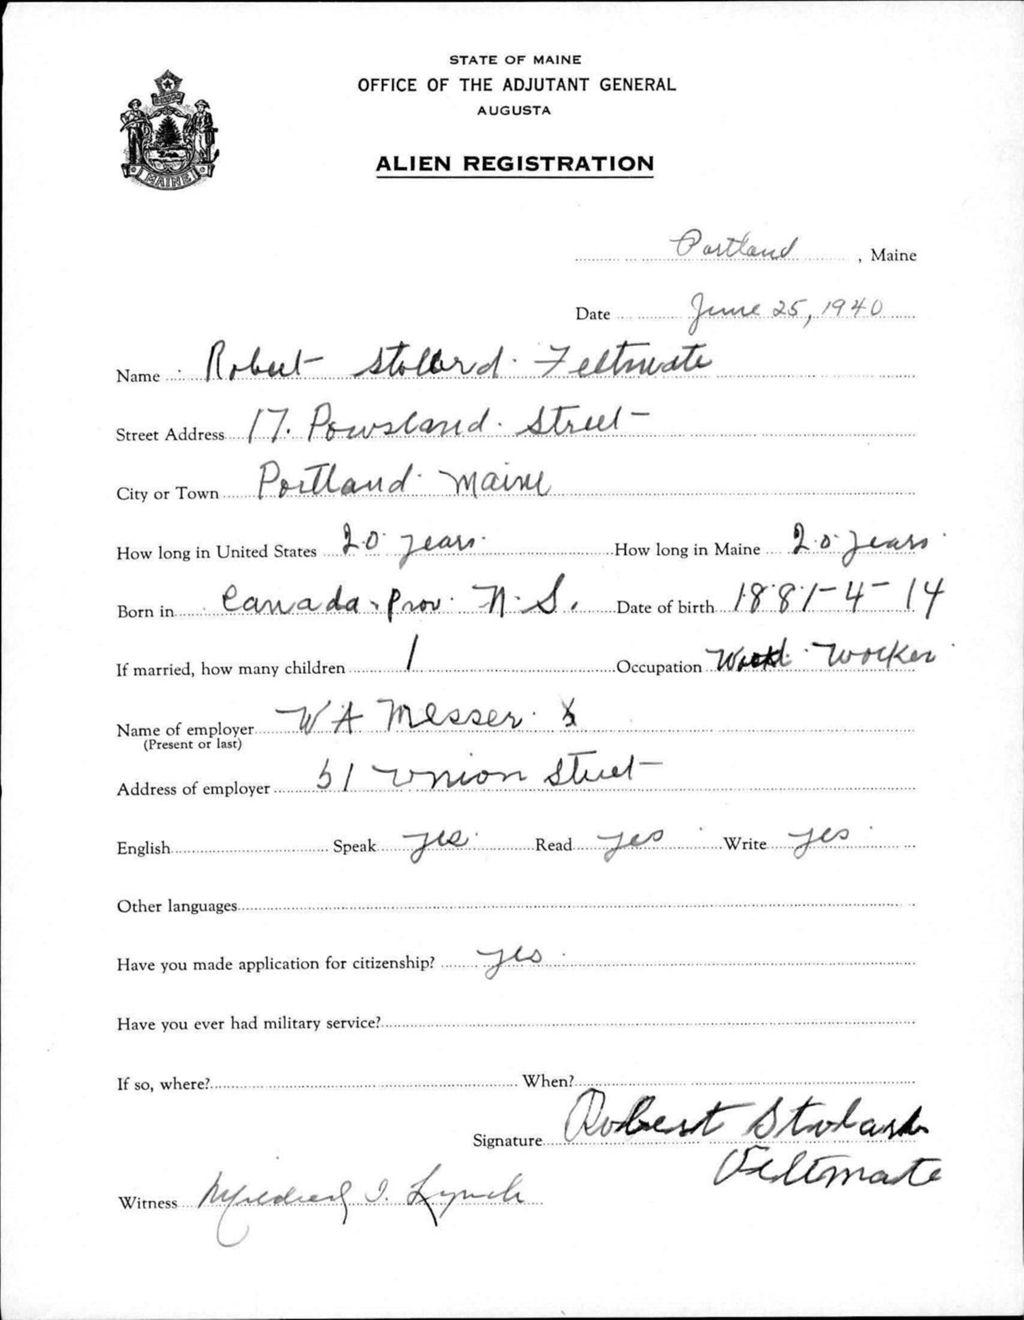 STATE OF MAINE
OFFICE OF THE ADJUTANT GENERAL
AUGUSTA
ALIEN REGISTRATION
MAINE
Portland, Maine
Date June 25, 1940
Name Robert Stollard Feltmate
Street Address 17. Powsland. Street
City or Town Portland Maine
How long in United States 20 years How long in Maine 20 years
Born in Canada. Prov. N. S. Date of birth 1881-4-14
If married, how many children 1 Occupation Wood Worker
Name of employer W A Messer
(Present or last)
Address of employer 51 Union Street
English Speak yes Read yes Write yes
Other languages
Have you made application for citizenship? yes
Have you ever had military service?
If so, where? When?
Signature Robert Stolard
Feltmate
Witness Mildred I. Lynch